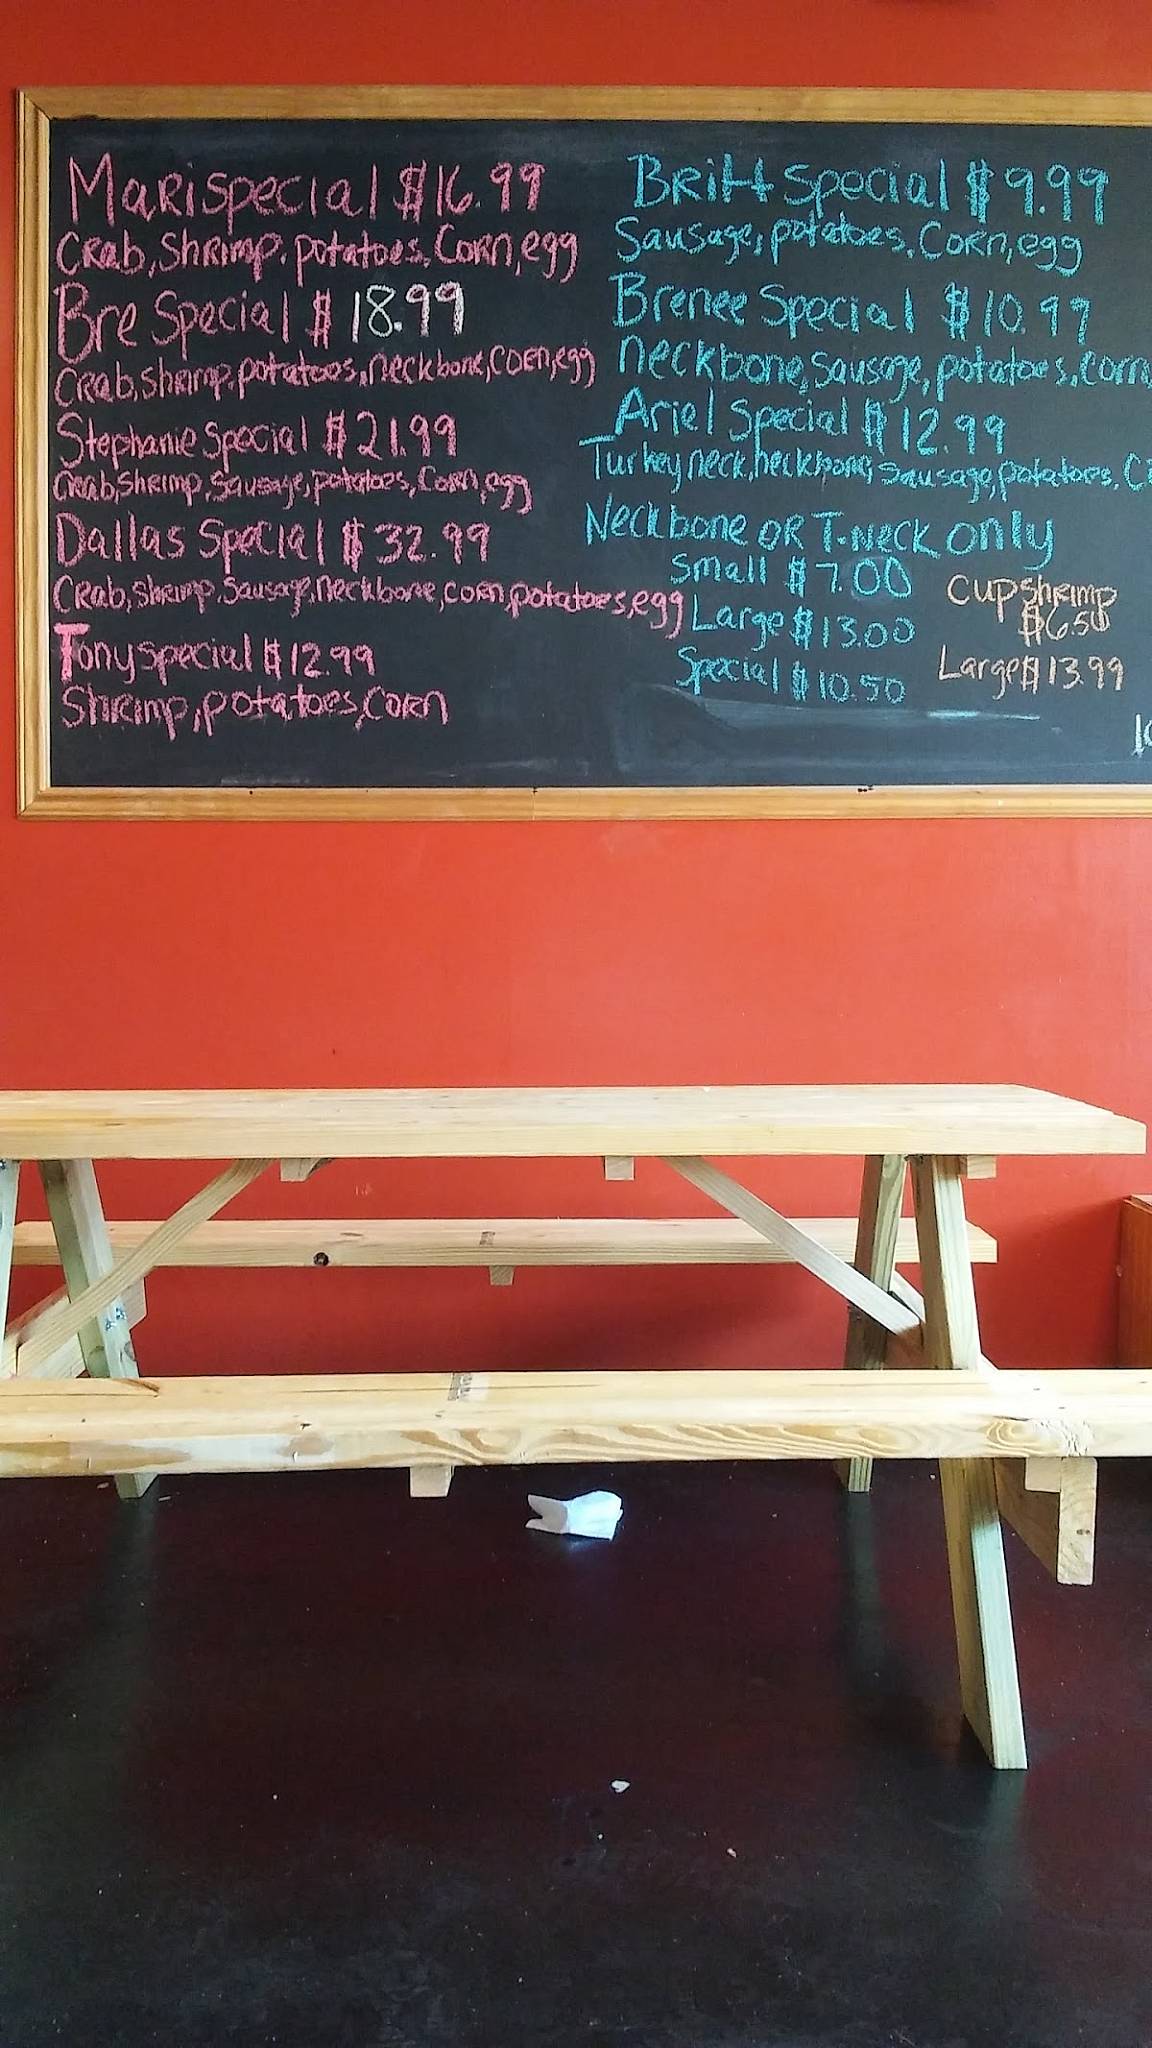 Mari special $16.99
Crab, Shrimp, potatoes, Corn, egg
Bre Special $18.99
Crab, shrimp, potatoes, neckbone, corn, egg
Stephanie Special $21.99
Crab, Shrimp, Sausage, potatoes, Corn, egg
Dallas Special $32.99
Crab, shrimp, Sausage, neckbone, corn, potatoes, egg
Tony special $12.99
Shrimp, potatoes, Corn
Britt Special $9.99
Sausage, potatoes, Corn, egg
Brenee Special $10.99
neckbone, Sausage, potatoes, Corn,
Ariel Special $12.99
Turkey neck, neckbone, sausage, potatoes,
Neckbone OR T-Neck only
Small $7.00
Large $13.00
Special $10.50
Cup shrimp
$6.50
Large $13.99